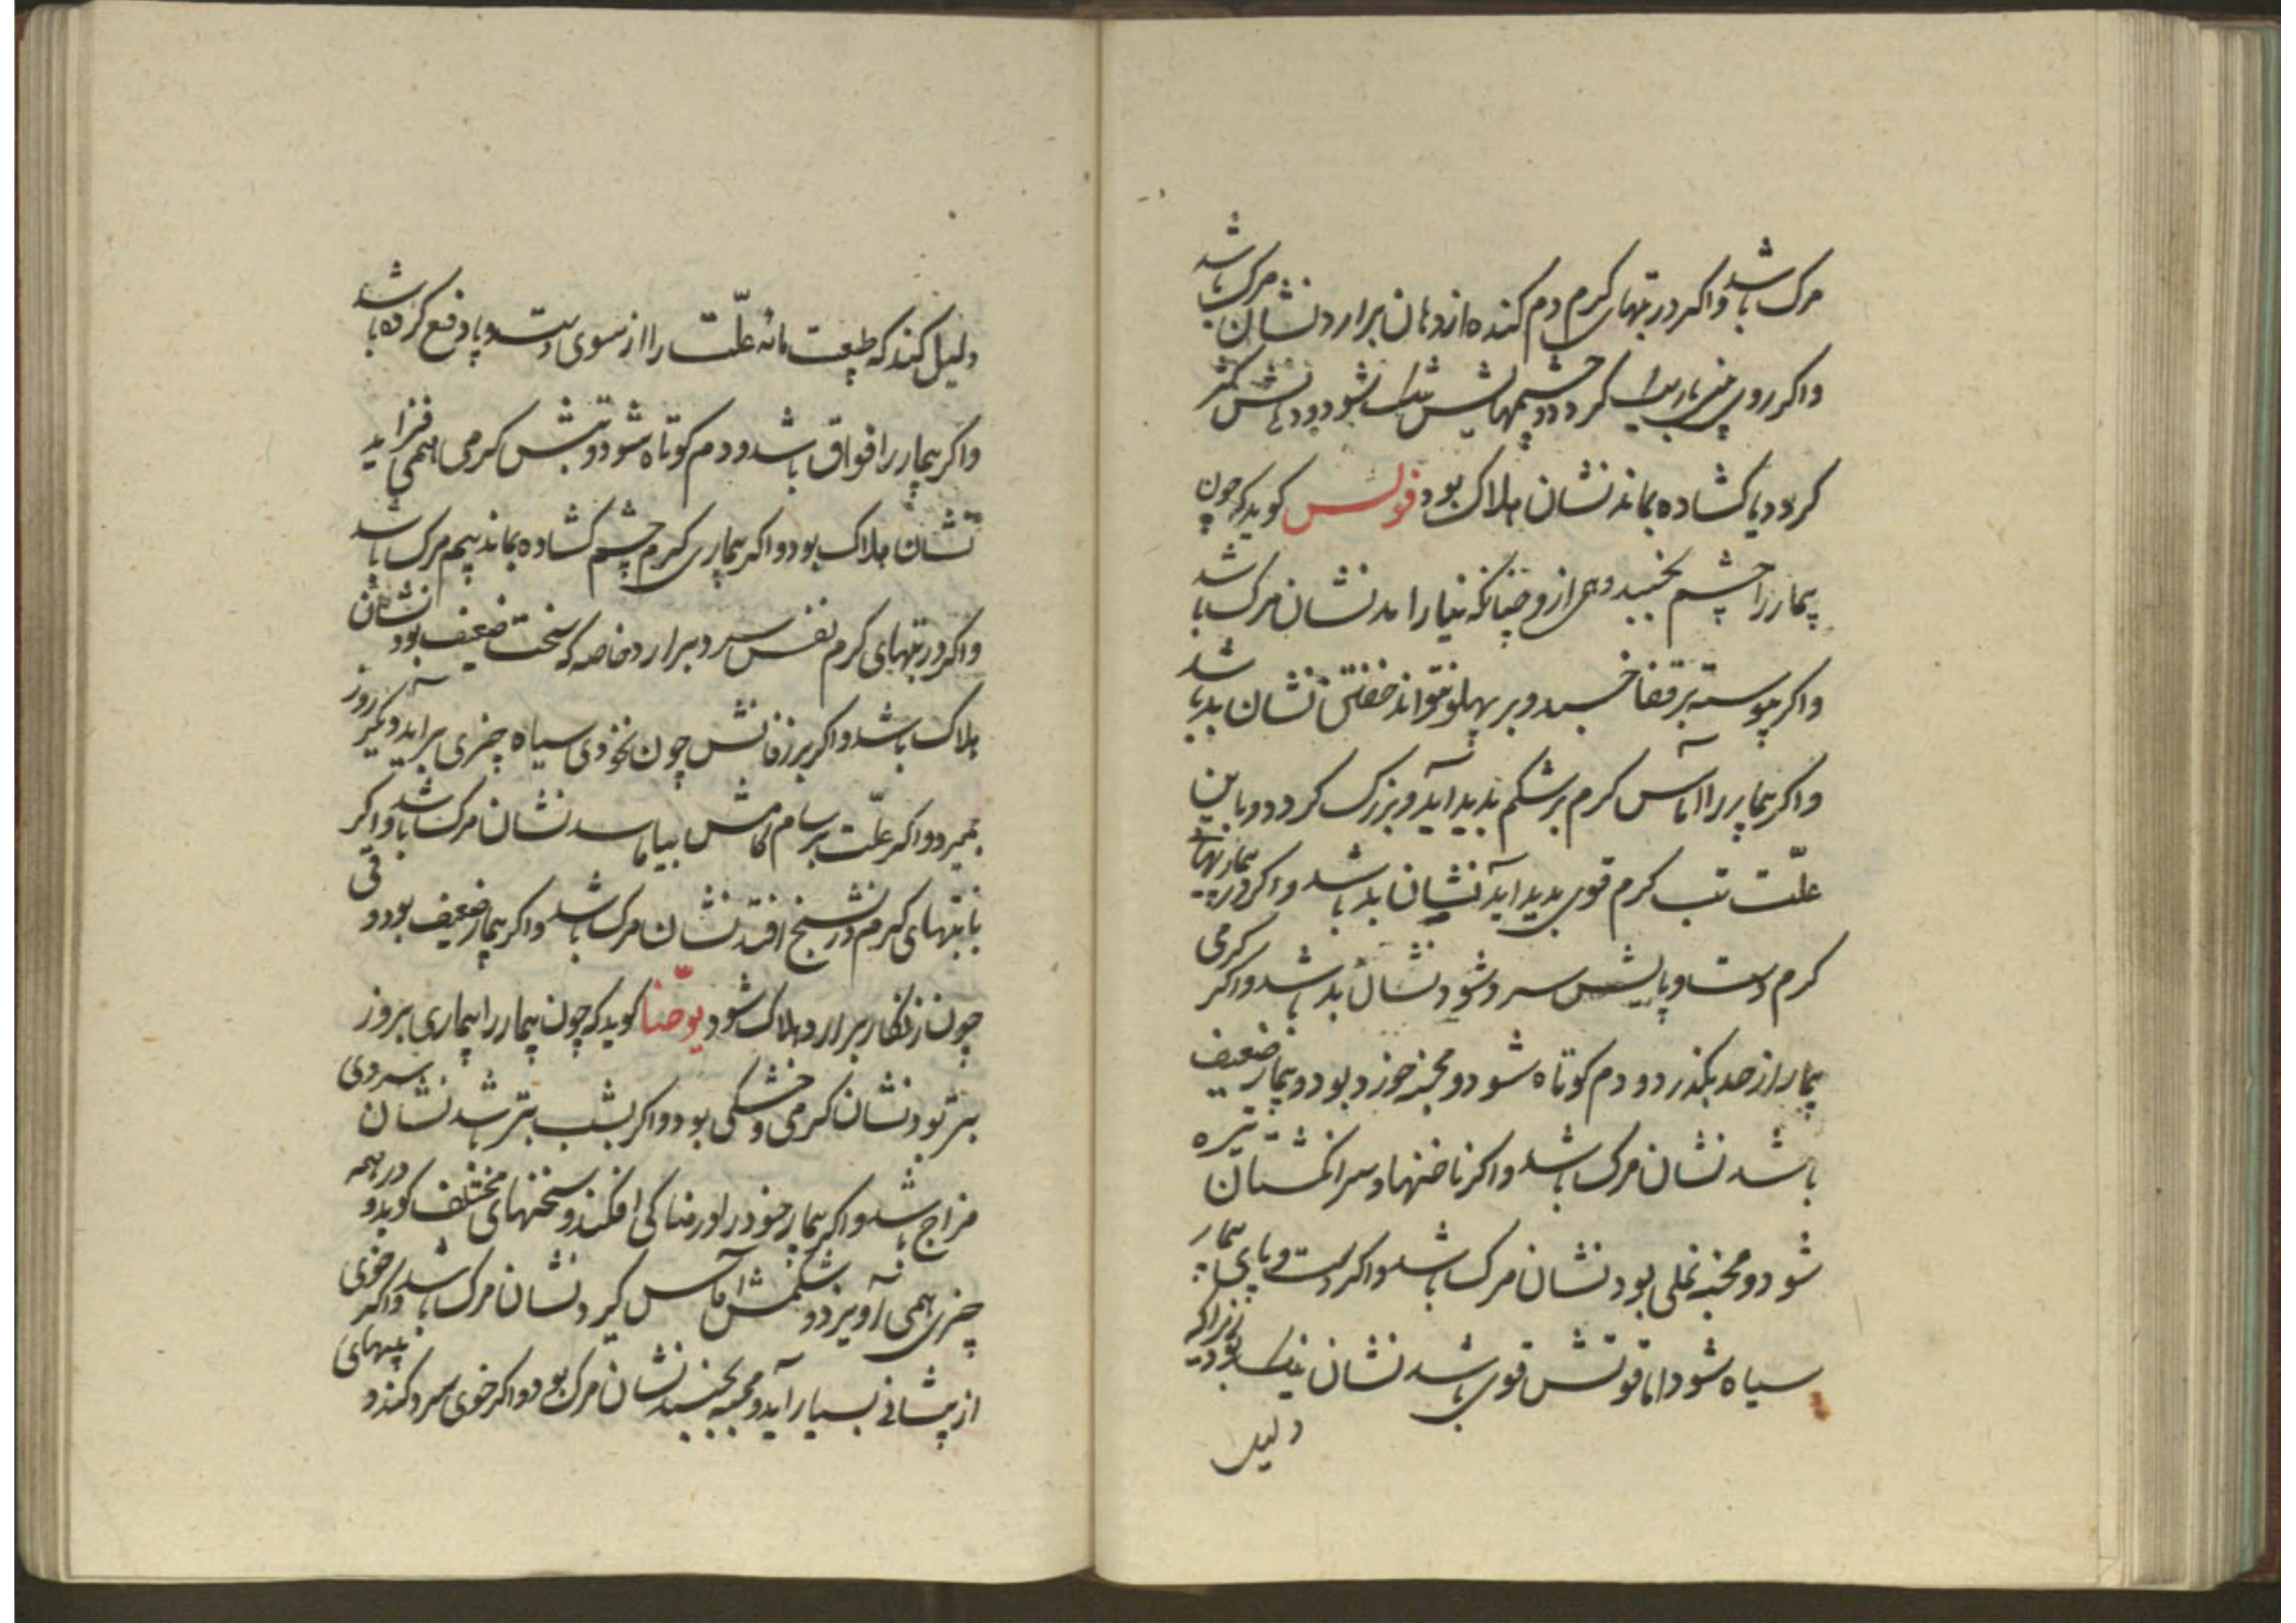 مرک باشد واکر در تبهای کرم دم کنده از دهان برارد نشان مرک باشد
واکر روی کردد و چشمهایش شود و دهانش کژ
کردد یا کشاده بماند نشان هلاک بود فولس کوید که چون
بیمار را چشم بخنبد و چنانکه نیارامد نشان مرک باشد
واکر پیوسته بر قفا خسبد و بر پهلو نتواند خفتن نشان بد باشد
واکر بیمار را آماس کرم بر شکم بدید آید و بزرک کردد و با این
علّت تب کرم قوی بدید آید نشان بد باشد واکر در بیماریهاء
کرم دست و پایش سرد شود نشان بد باشد واکر کرمی
بیمار از حد بکذرد و دم کوتاه شود و مجنبه خورد بود و بیمار ضعیف
باشد نشان مرک باشد واکر ناخنها و سر انکشتان تیره
شود و مجنبه نملی بود نشان مرک باشد واکر دست و پای بیمار
سیاه شود اما قوتش قوی باشد نشان نیک بود زیراکه
دلیل
دلیل کند که طبیعت مانه علّت را از سوی دست و پا دفع کرده باشد
واکر بیمار را فواق باشد و دم کوتاه شود و تبش کرمی همی فزاید
نشان هلاک بود واکر بیماری کرم چشم کشاده بماند بیم مرک باشد
واکر در تبهای کرم نفس سرد برارد خاصه که سخت ضعیف بود نشان
هلاک باشد واکر بر زفانش چون نخودی سیاه چیزی براید دیکر روز
بمیرد واکر علّت برسام کامش بیاماسد نشان مرک باشد واکر
با تبهای کرم در تشنج افتد نشان مرک باشد واکر بیمار ضعیف بود و قی
چون زنکار برارد هلاک شود یوحنّا کوید که چون بیمار را بیماری بروز
بتر بود نشان کرمی و خشکی بود واکر بشب بتر باشد نشان سردی
مزاج باشد واکر بیمار خود را ورمناکی افکند و سخنهای مختلف کوید و در همه
چیزی همی آویزد و شکمش آماس کیرد نشان مرک باشد واکر خوی
از پیشانی بسیار آید و مجنبه بخنبد نشان مرک بود واکر خوی سرد کند و پیهای